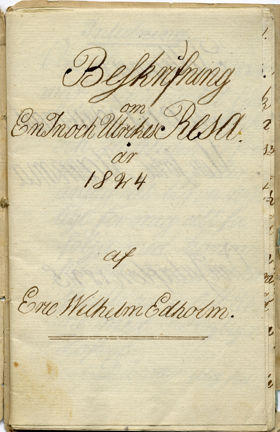 Beskrifning
om
En Inoch Utrikes Resa.
år
1824
af
Eric Wilhelm Edholm.